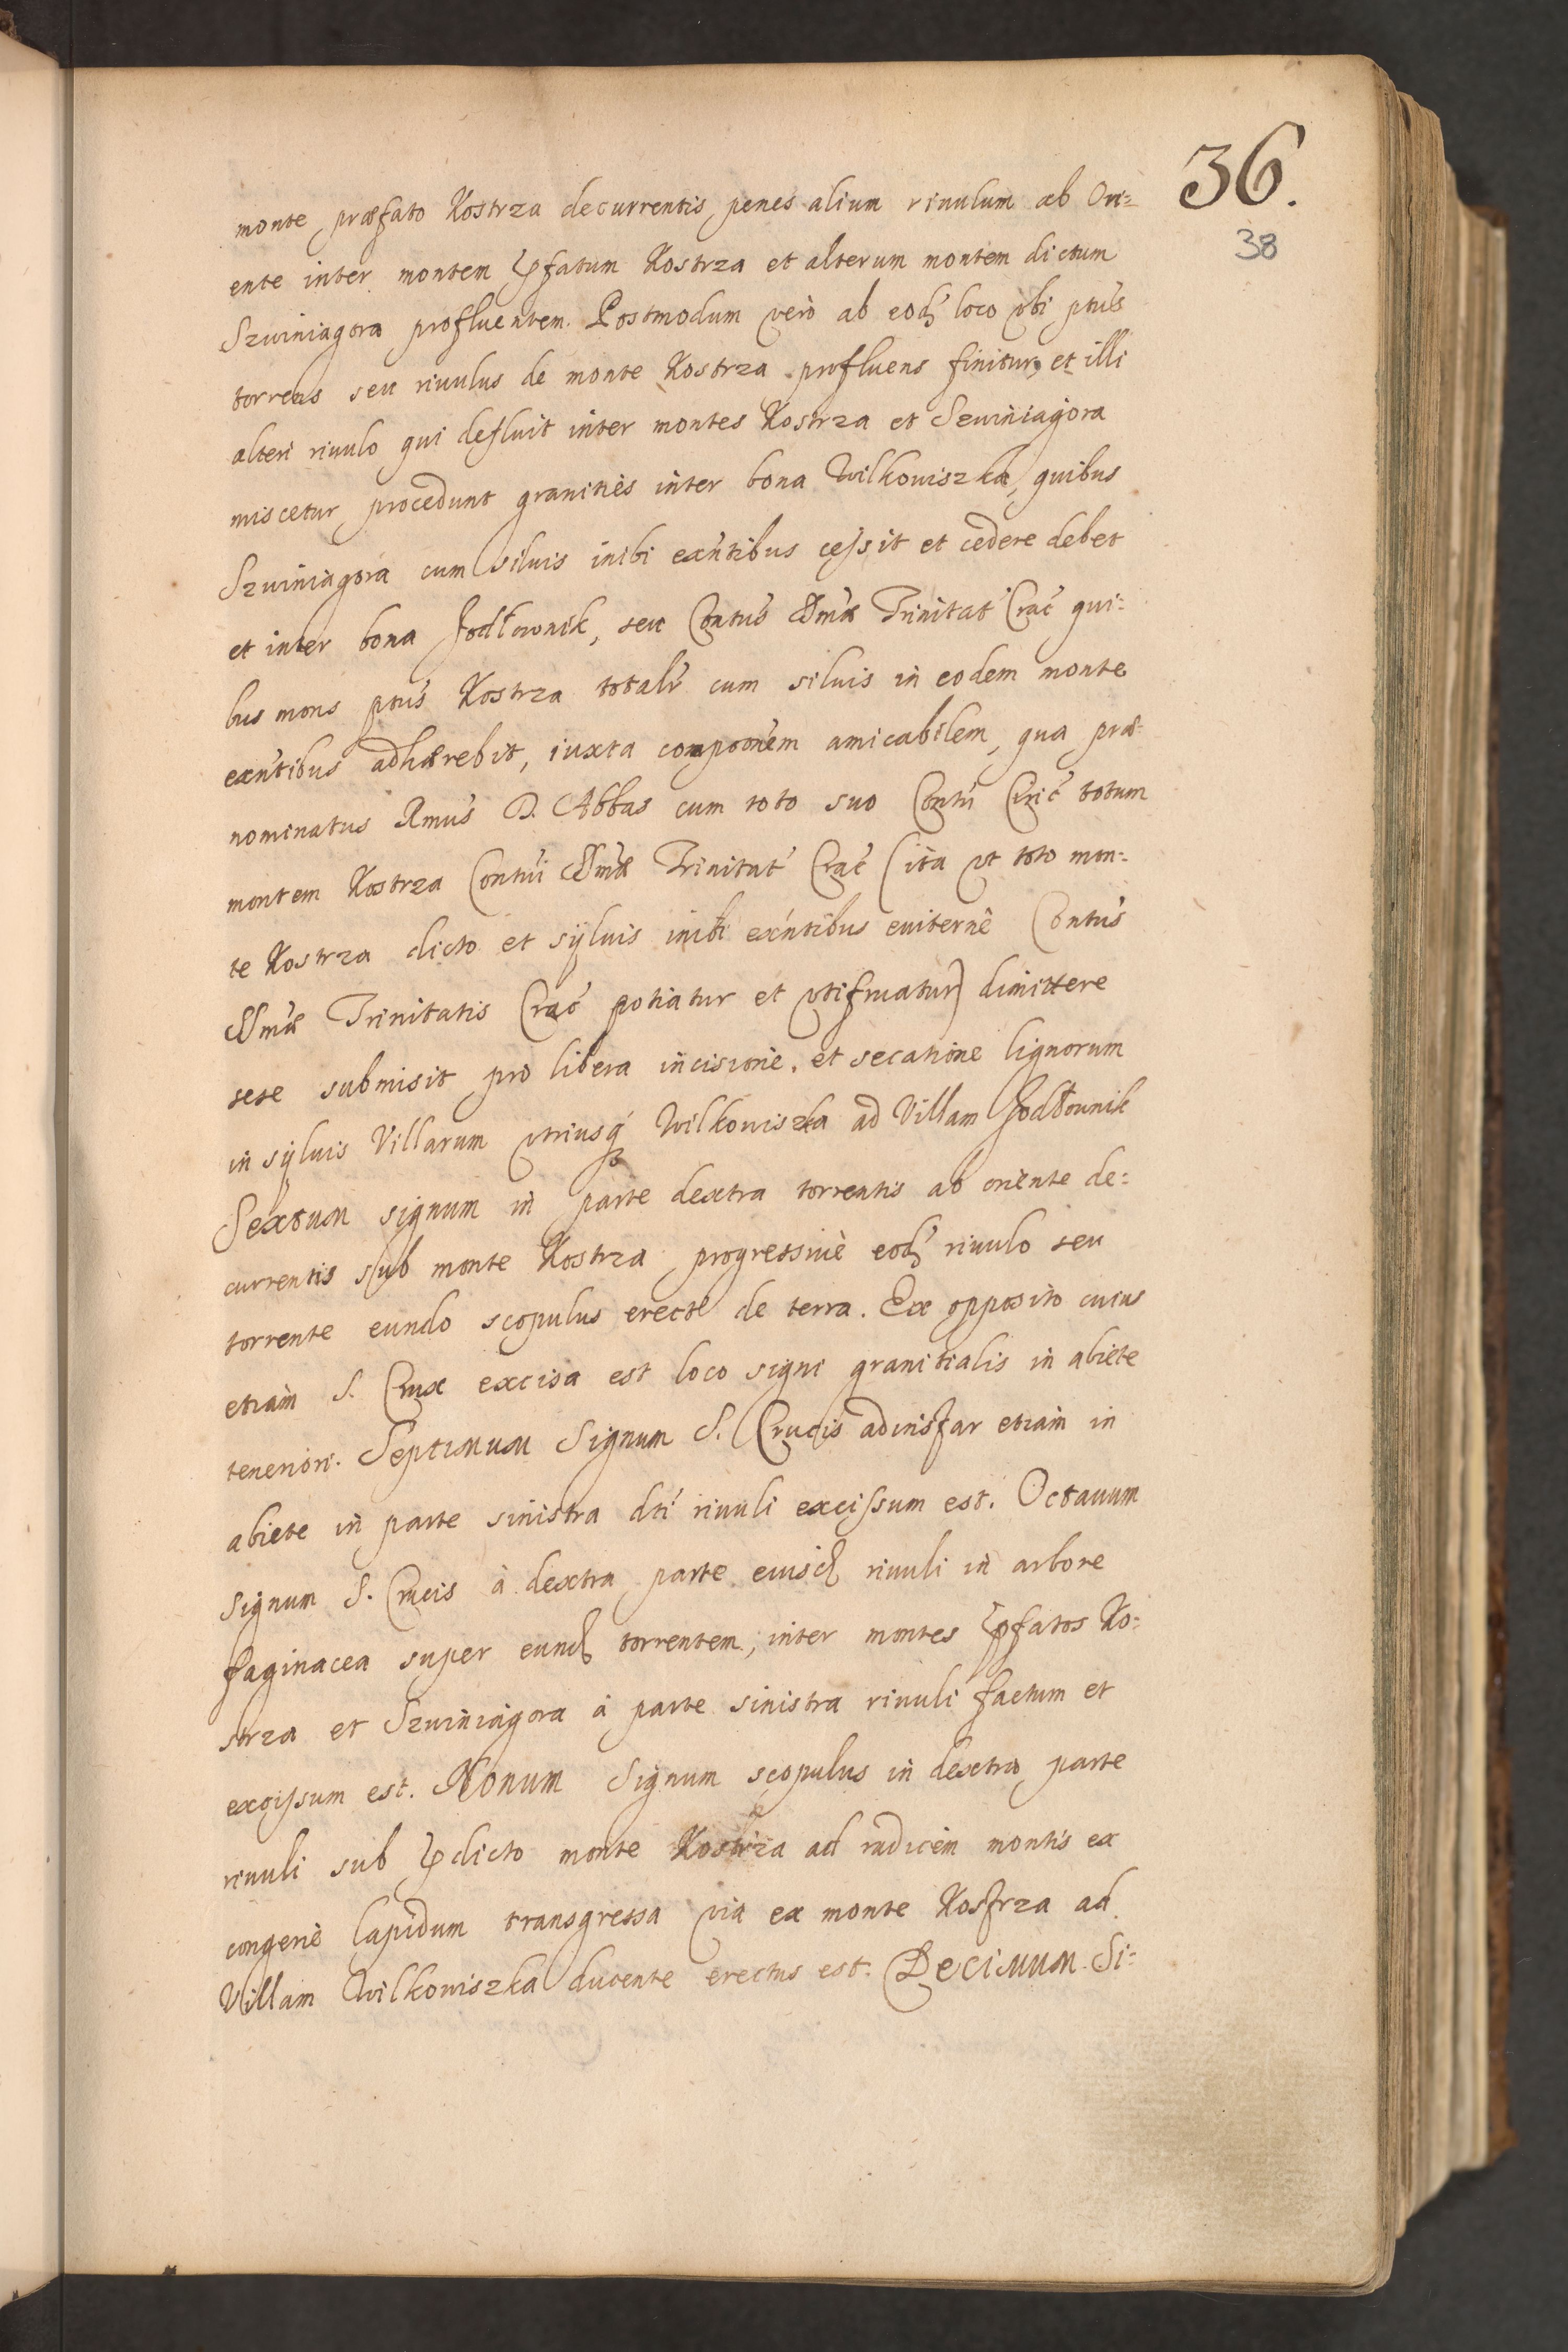 36.
38
monte præfato Kostrza decurrentis, penes alium riuulum ab Ori=
ente inter montem p̱fatum Kostrza et alterum montem dictum
Szwiniagora profluentem. Postmodum verò ab eod́ loco vbi ptus̃
torrens seu riuulus de monte Kostrza profluens finitur, et illi
alteri riuulo qui defluit inter montes Kostrza et Szwiniagora
miscetur, procedunt granities inter bona Wilkowiszka, quibus
Szwiniagora cum siluis inibi exñtibus cessit et cedere debet
et inter bona Jodłownik, seu Contus̃ SSmæ Trinitat̃ Crac̃ qui=
bus mons ptus̃ Kostrza totalr̃ cum siluis in eodem monte
exñtibus adhærebit, iuxta compoõnem amicabilem, qua præ=
nominatus Rmus̃ D. Abbas cum toto suo Contũ Ciric̃ totum
montem Kostrza Contui SSmæ Trinitat̃ Crac̃ (ita vt toto mon=
te Kostrza dicto et syluis inibi exñtibus euiternè Contus̃
SSmæ Trinitatis Crac̃ potiatur et vtifruatur) dimittere
sese submisit pro libera incisione, et secatione lignorum
in syluis Villarum vtriusq́ Wilkowiszka ad Villam Jodłownik
Sextum signum in parte dextra torrentis ab oriente de=
currentis sub monte Kostrza progressiuè eod́ riuulo seu
torrente eundo scopulus erectg de terra. Ex opposito cuius
etiam S. Crux excisa est loco signi granitialis in abiete
teneriori. Septimum Signum S. Crucis adinstar etiam in
abiete in parte sinistra dti riuuli excissum est. Octauum
Signum S. Crucis à dextra parte eiusd́ riuuli in arbore
faginacea super eund́ torrentem, inter montes p̱fatos Ko=
strza et Szwiniagora à parte sinistra riuuli factum et
excissum est. Nonum Signum scopulus in dextra parte
riuuli sub p̱dicto monte Kostrza ad radicem montis ex
congerie lapidum transgressa via ex monte Kostrza ad
Villam Wilkowiszka ducente erectus est. Decimum Si=